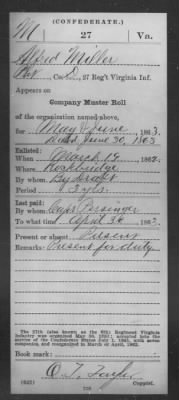 (CONFEDERATE.)
M 27 Va.
Alfred Miller
Pvt, Co. D, 27 Reg't Virginia Inf.
Appears on
Company Muster Roll
of the organization named above,
for May & June, 1863.
Dated June 30, 1863
Enlisted:
When March 19, 1862.
Where Rockbridge
By whom
Period 3 yrs.
Last paid:
By whom Capt.
To what time April 30, 1863.
Present or absent Present
Remarks: Present for duty
The 27th (also known as the 6th) Regiment Virginia
Infantry was organized May 30, 1861; accepted into the
service of the Confederate States July 1, 1861, with
companies, and reorganized in March or April, 1862.
Book mark:
(642)
Copyist.